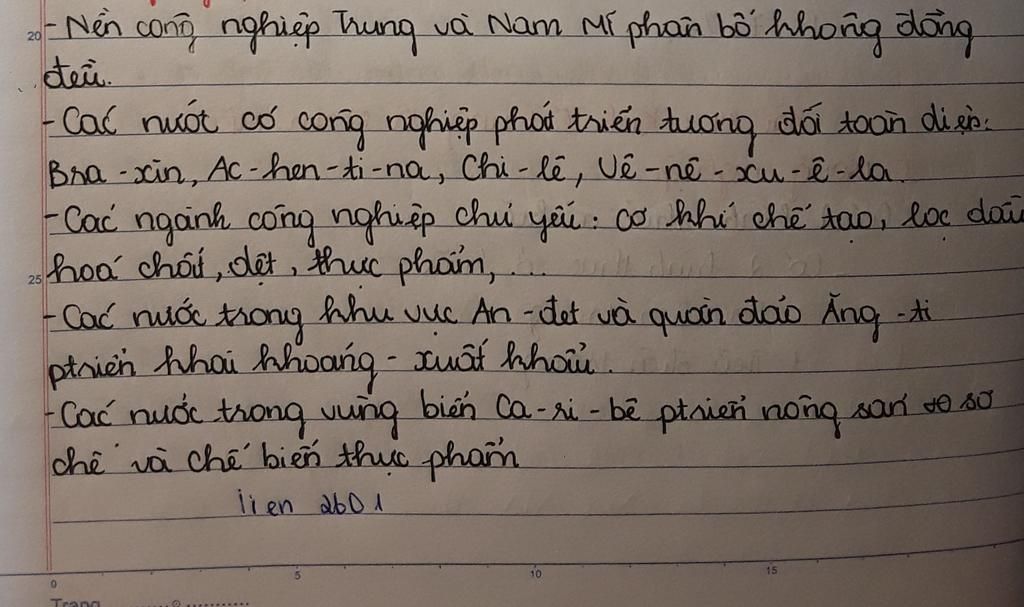 20
- Nền công nghiệp Trung và Nam Mĩ phân bố không đồng
đều.
- Các nước có công nghiệp phát triển tương đối toàn diện:
Bra-xin, Ac-hen-ti-na, Chi-lê, Vê-nê-xu-ê-la
- Các ngành công nghiệp chủ yếu: cơ khí chế tạo, lọc dầu
25 hoá chất, dệt, thực phẩm, ...
- Các nước trong khu vực An-đet và quần đảo Ăng-ti
ptriển khai khoáng - xuất khẩu.
- Các nước trong vùng biển Ca-ri-bê ptriển nông sản sơ
chế và chế biến thực phẩm
lien 2601
0 5 10 15
Trang